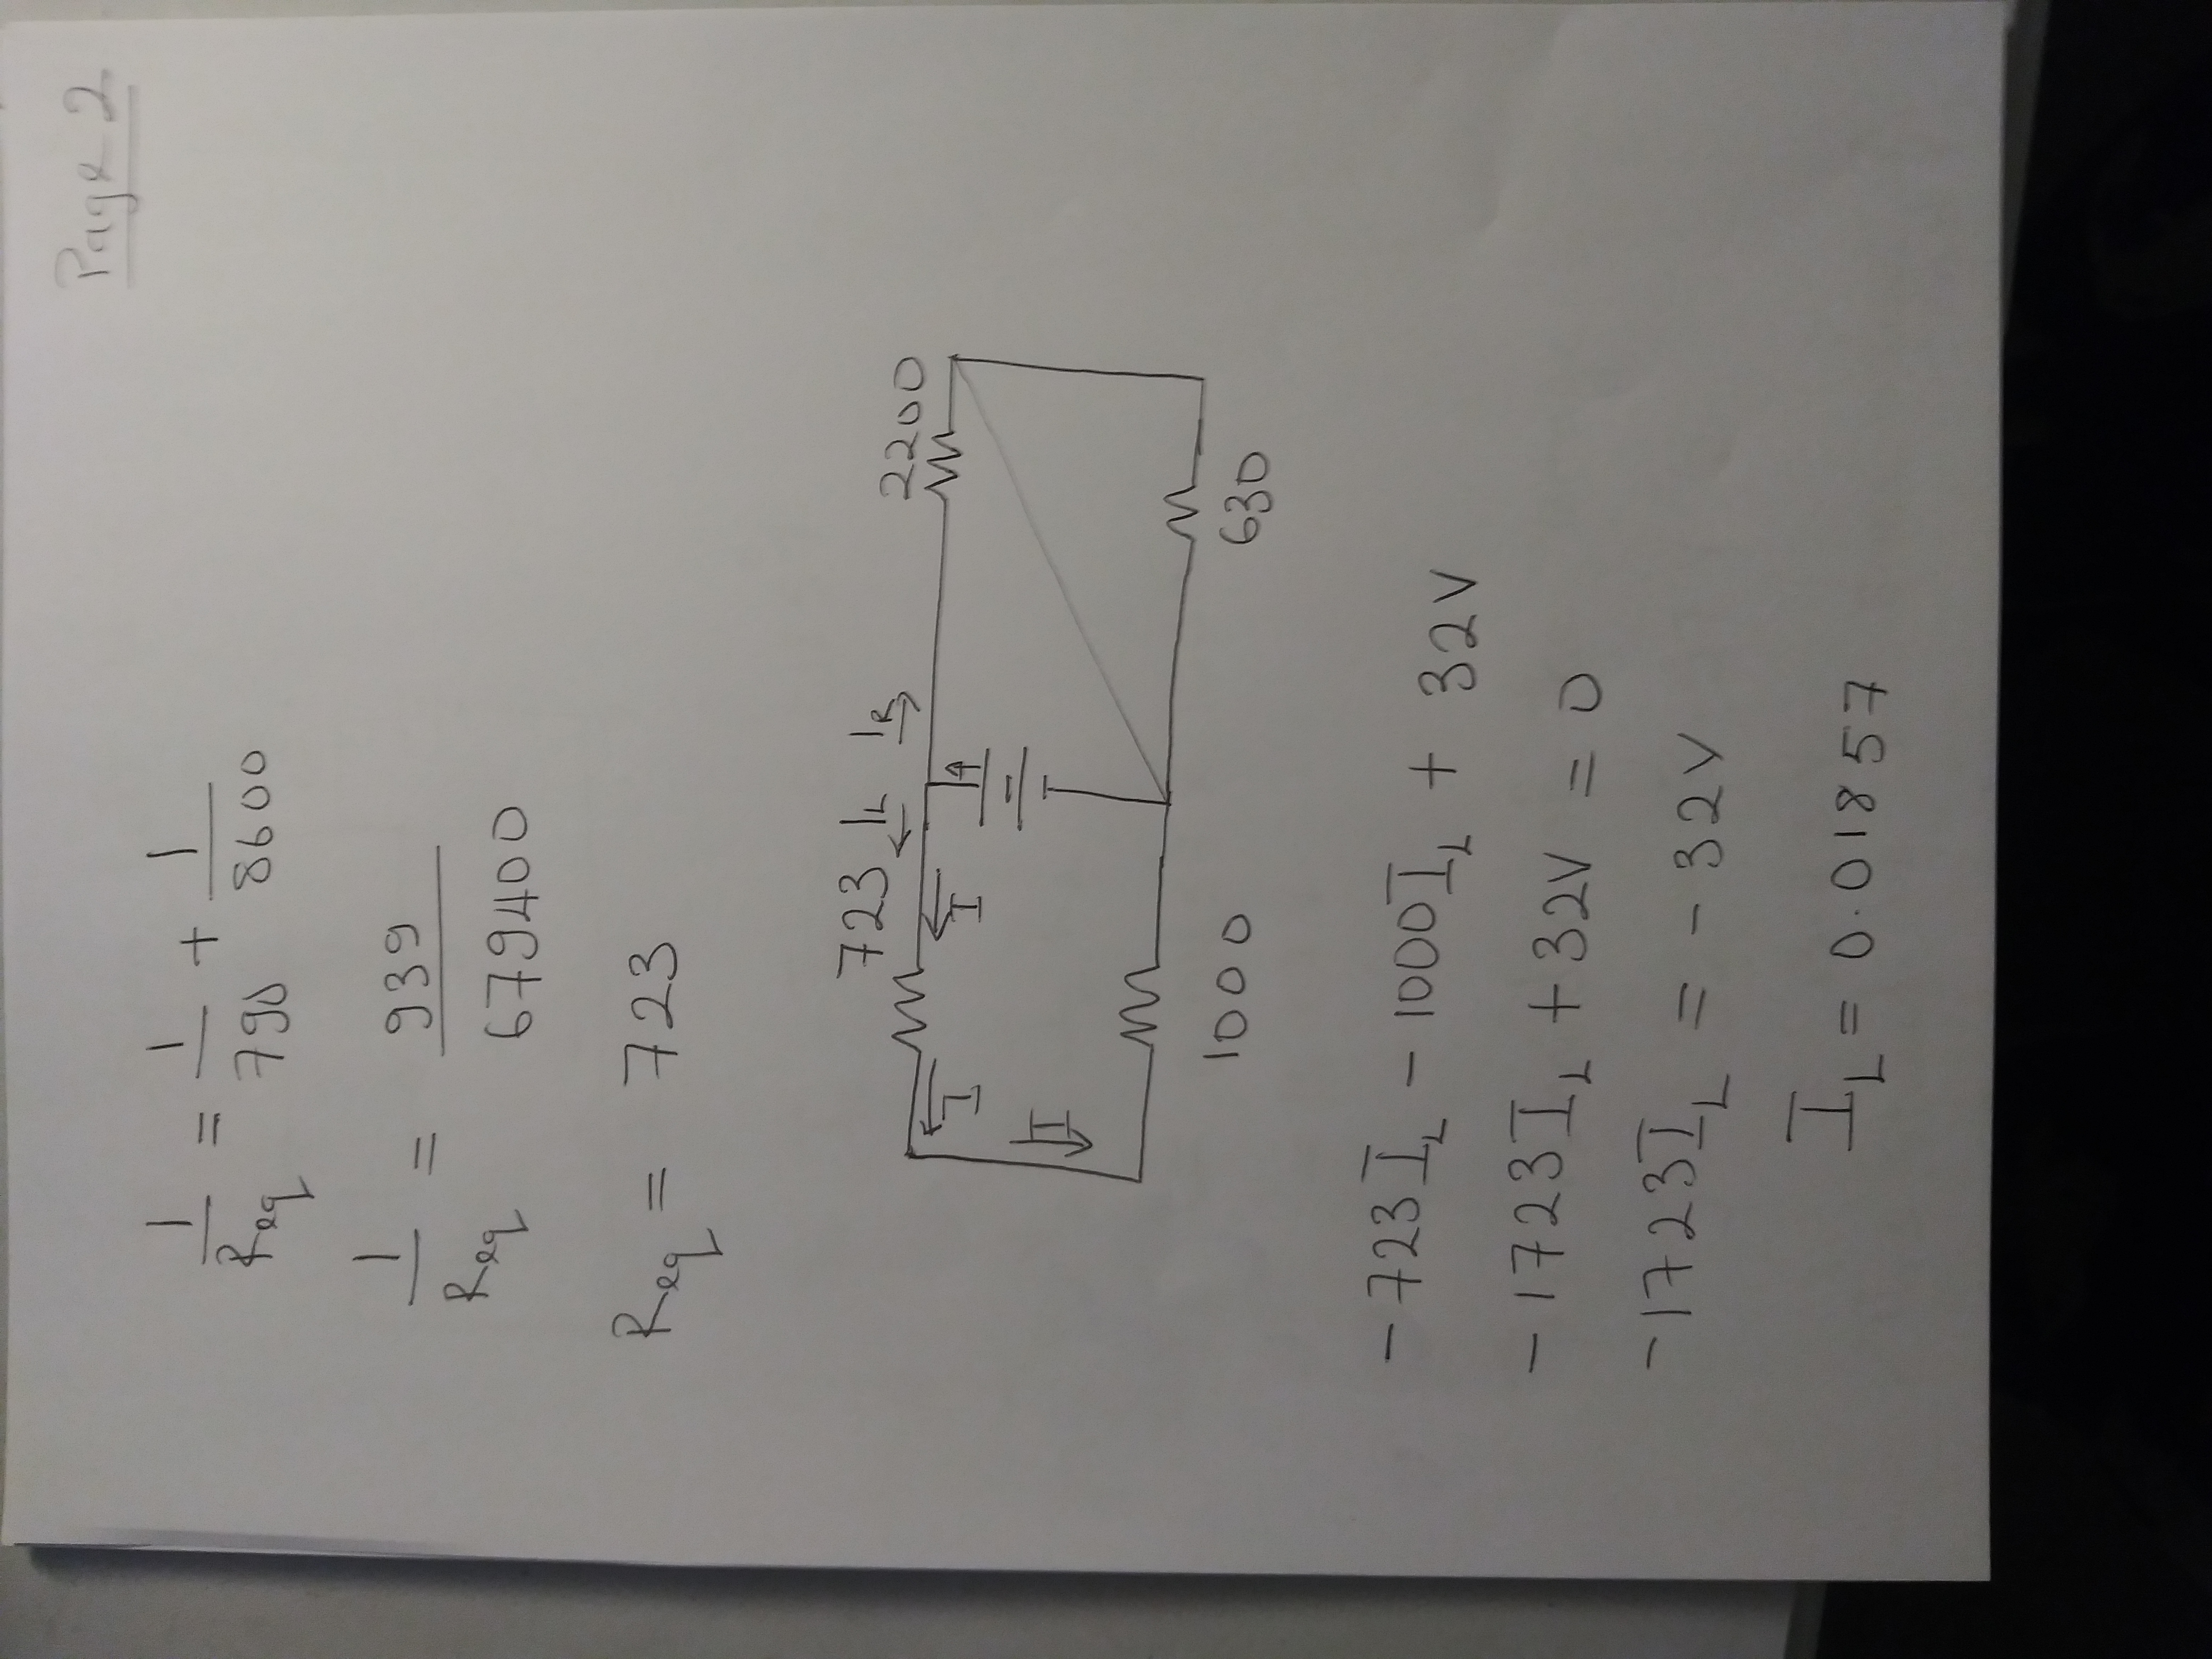 Page 2
1/Req = 1/790 + 1/8600
1/Req = 939/679400
Req = 723
723 IL IR 2200
I I
I
1000 630
-723IL - 1000IL + 32V
-1723IL + 32V = 0
-1723IL = -32V
IL = 0.01857